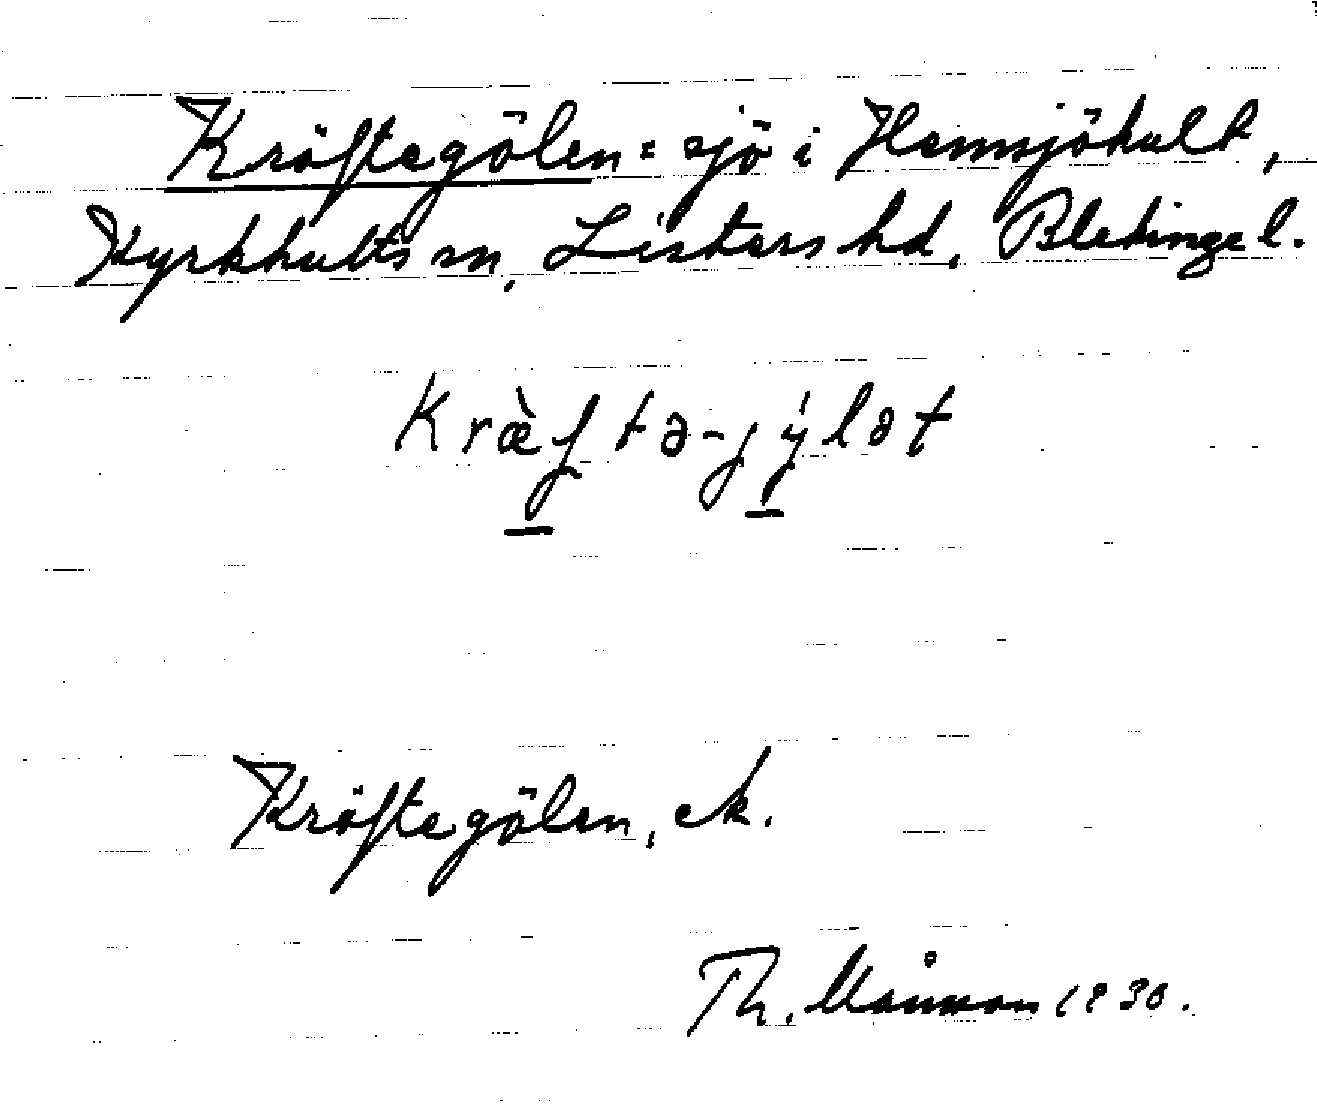 Kräftegölen = sjö i Hemsjöhult,
Kyrkhults sn, Listers hd, Blekinge l.
Kræ̀ftə-jýlət
Kräftegölen, ek.
Th. Månson 1930.